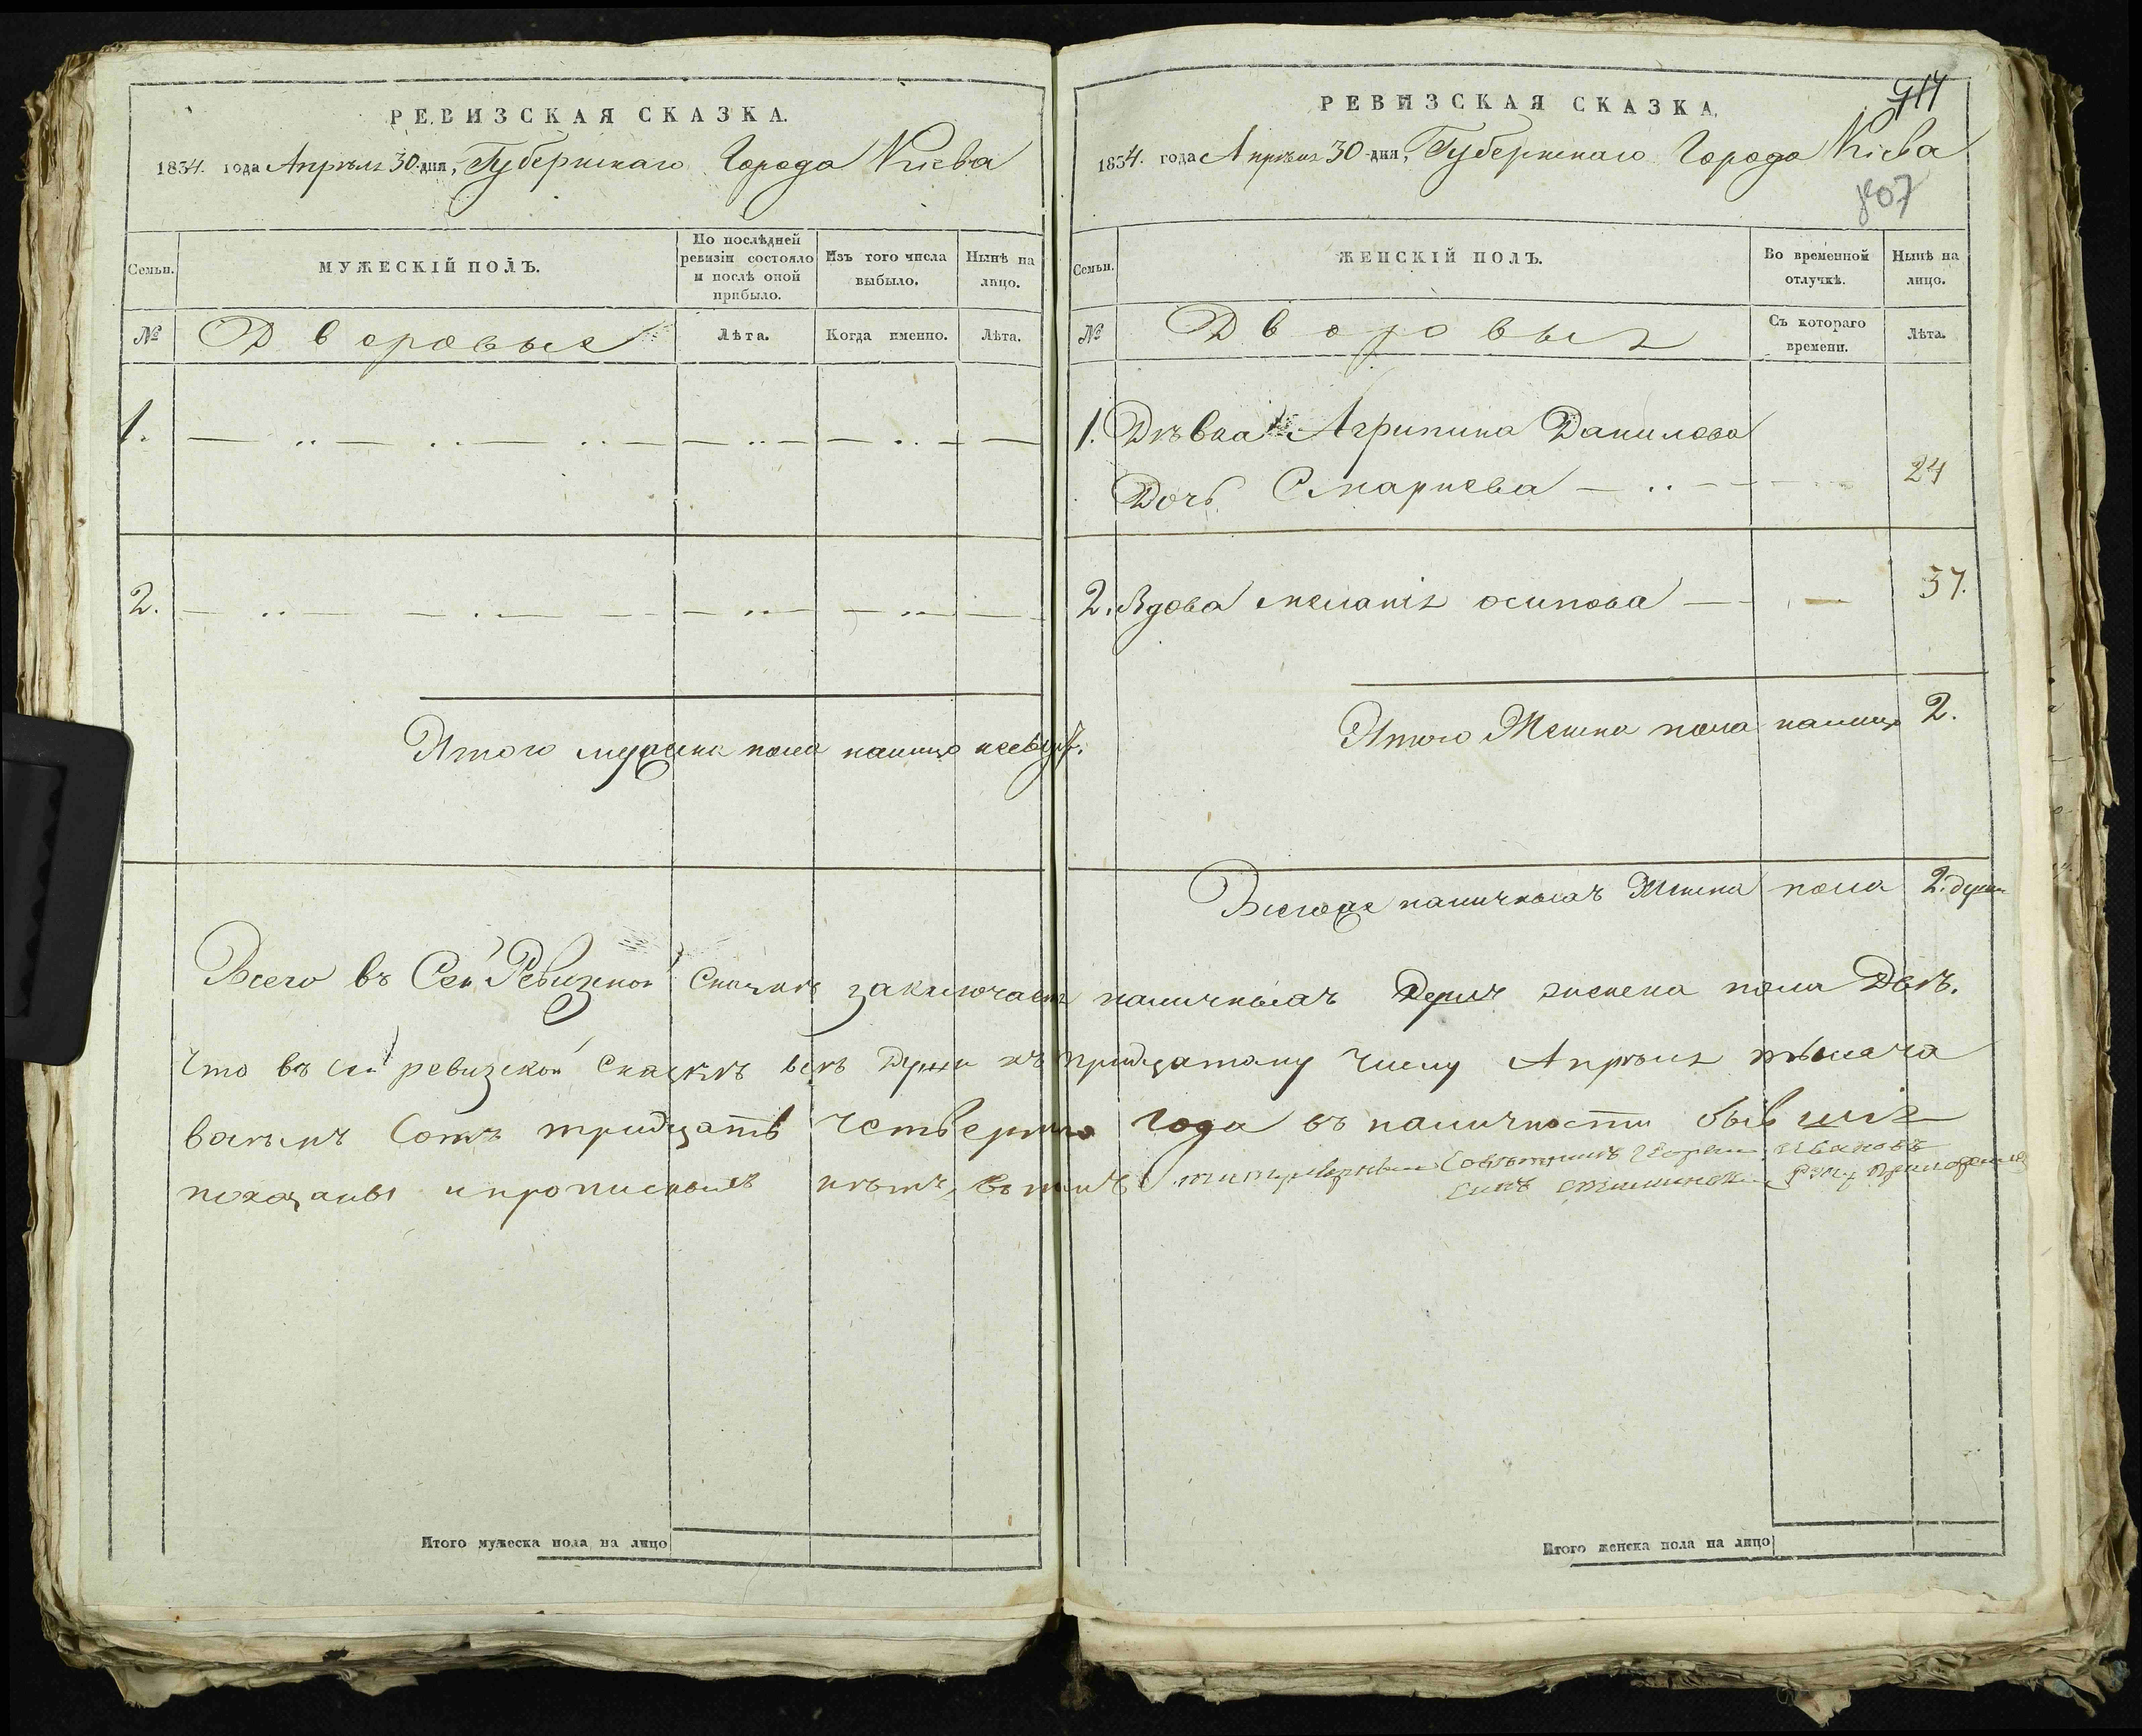 РЕВИЗСКАЯ СКАЗКА.
1834. года Апрѣля 30. дня, Губернскаго Города Кіева
Семьи.
МУЖЕСКІЙ ПОЛЪ.
По послѣдней
ревизіи состояло
и послѣ оной
прибыло.
Изъ того числа
выбыло.
Нынѣ на
лицо.
№
Дворовые
Лѣта.
Когда именно.
Лѣта.
1.
2.
Итого мужеска пола налицо
Итого мужеска пола на лицо
914
РЕВИЗСКАЯ СКАЗКА.
1834. года Апрѣля 30 дня, Губернскаго Города Кіева
807
Семьи.
ЖЕНСКІЙ ПОЛЪ.
Во временной
отлучкѣ.
Нынѣ на
лицо.
№
Дворовыя
Съ котораго
времени.
Лѣта.
1. Дѣвка Агрипина Данилова
Дочь 24
2. Вдова меланія осипова 37.
Итого Женска пола налицо 2.
Всегоже наличныхъ Женска пола 2. души
Всего въ Сей Ревизкой Сказкѣ заключается наличныхъ Душъ женска пола Двѣ.
Что въ сей ревизской Сказкѣ всѣ Души къ тридцатому числу Апрѣля тысяча
восемь Сотъ тридцать четвертаго года въ наличности бывшія
показаны и прописныхъ нѣтъ, въ томъ титулярный Совѣтникъ Ивановъ
Сынъ руку приложилъ
Итого женска пола на лицо